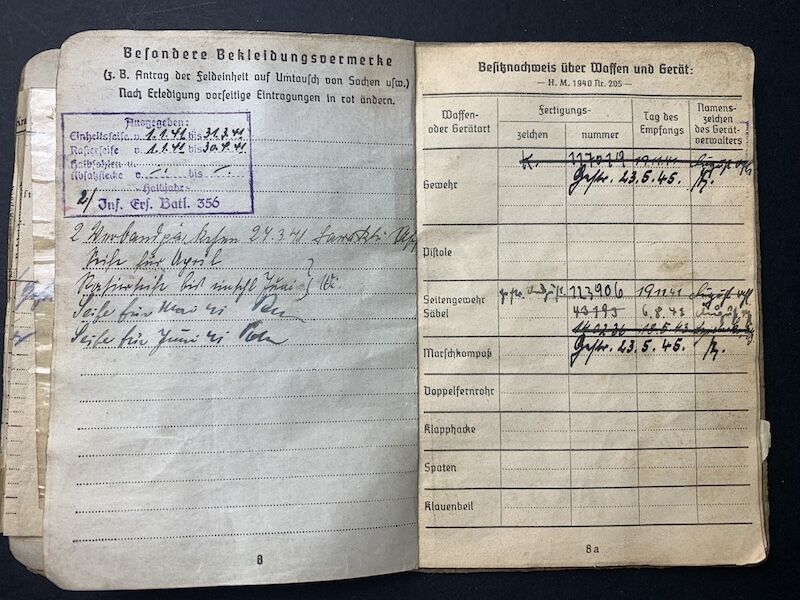 Besondere Bekleidungsvermerke
(z. B. Antrag der Feldeinheit auf Umtausch von Sachen usw.)
Nach Erledigung vorseitige Eintragungen in rot ändern.
Ausgegeben:
Einheitsseife v. 1.1.41 bis 31.3.41
Rasierseife v. 1.1.41 bis 30.4.41
Halbsohlen u.
Absatzflecke v. bis
Halbjahr
2/ Inf. Ers. Batl. 356
2 Verbandpäckchen 27.3.41
Seife für April
Rasierseife bis einschl Juni
Seife für Mai 41
Seife für Juni 41
8
Besitznachweis über Waffen und Gerät:
— H. M. 1940 Nr. 205 —
Waffen- oder Gerätart
Fertigungs-
zeichen
nummer
Tag des Empfangs
Namens-zeichen des Gerät-verwalters
Gewehr
K. 117029 19.11.41
Gestr. 23.5.45.
Pistole
Seitengewehr
Säbel
123906 19.11.41
43193 6.8.43
18.5.43
Marschkompaß
Gestr. 23.5.45.
Doppelfernrohr
Klapphacke
Spaten
Klauenbeil
8a